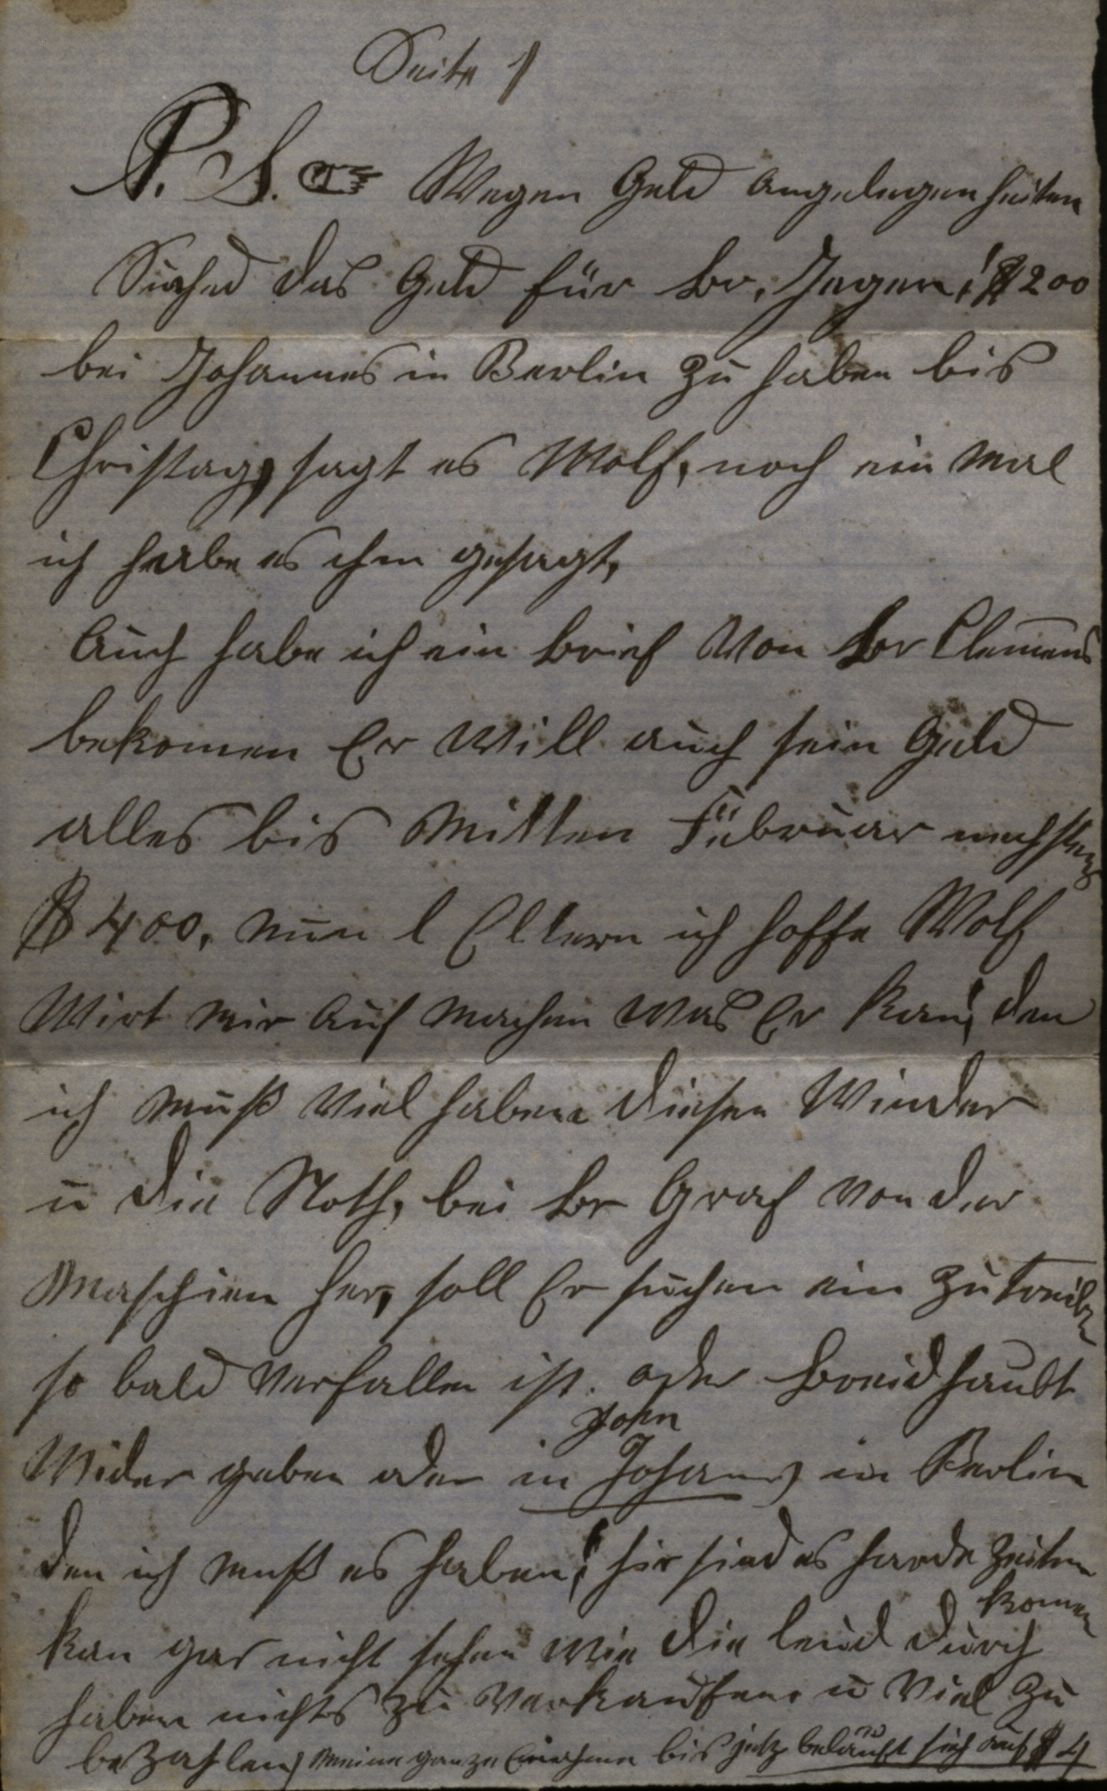 Seite 1
P. S. Wegen Geld angelegenheiten
Suched das Geld für br. Jeger, $200
bei Johannes in Berlin zu haben bis
Christag, sagt es Wolf, noch ein mal
ich habe es ihm gesagt,
Auch habe ich ein brief Von br Clemens
bekomen Er Will auch sein Geld
alles bis Mitten Februar nechstens
$400, nun l Eltern ich hoffe Wolf
Wirt mir Auf machen was Er kan, den
ich muß Viel haben diesen Winder
u die Noth, bei br Graf von der
Maschien her, soll Er suchen ein zu treiben
so bald Verfallen ist. oder
John
Wider geben oder in Johanns in Berlin
den ich muß es haben, hir sind es harde Zeiten
komen
kan gar nicht sehen Wie die leud durch
haben nichts zu Verkaufen u Viel zu
beZahlen, meine ganze Einahme bis jetz belauft sich auf $4